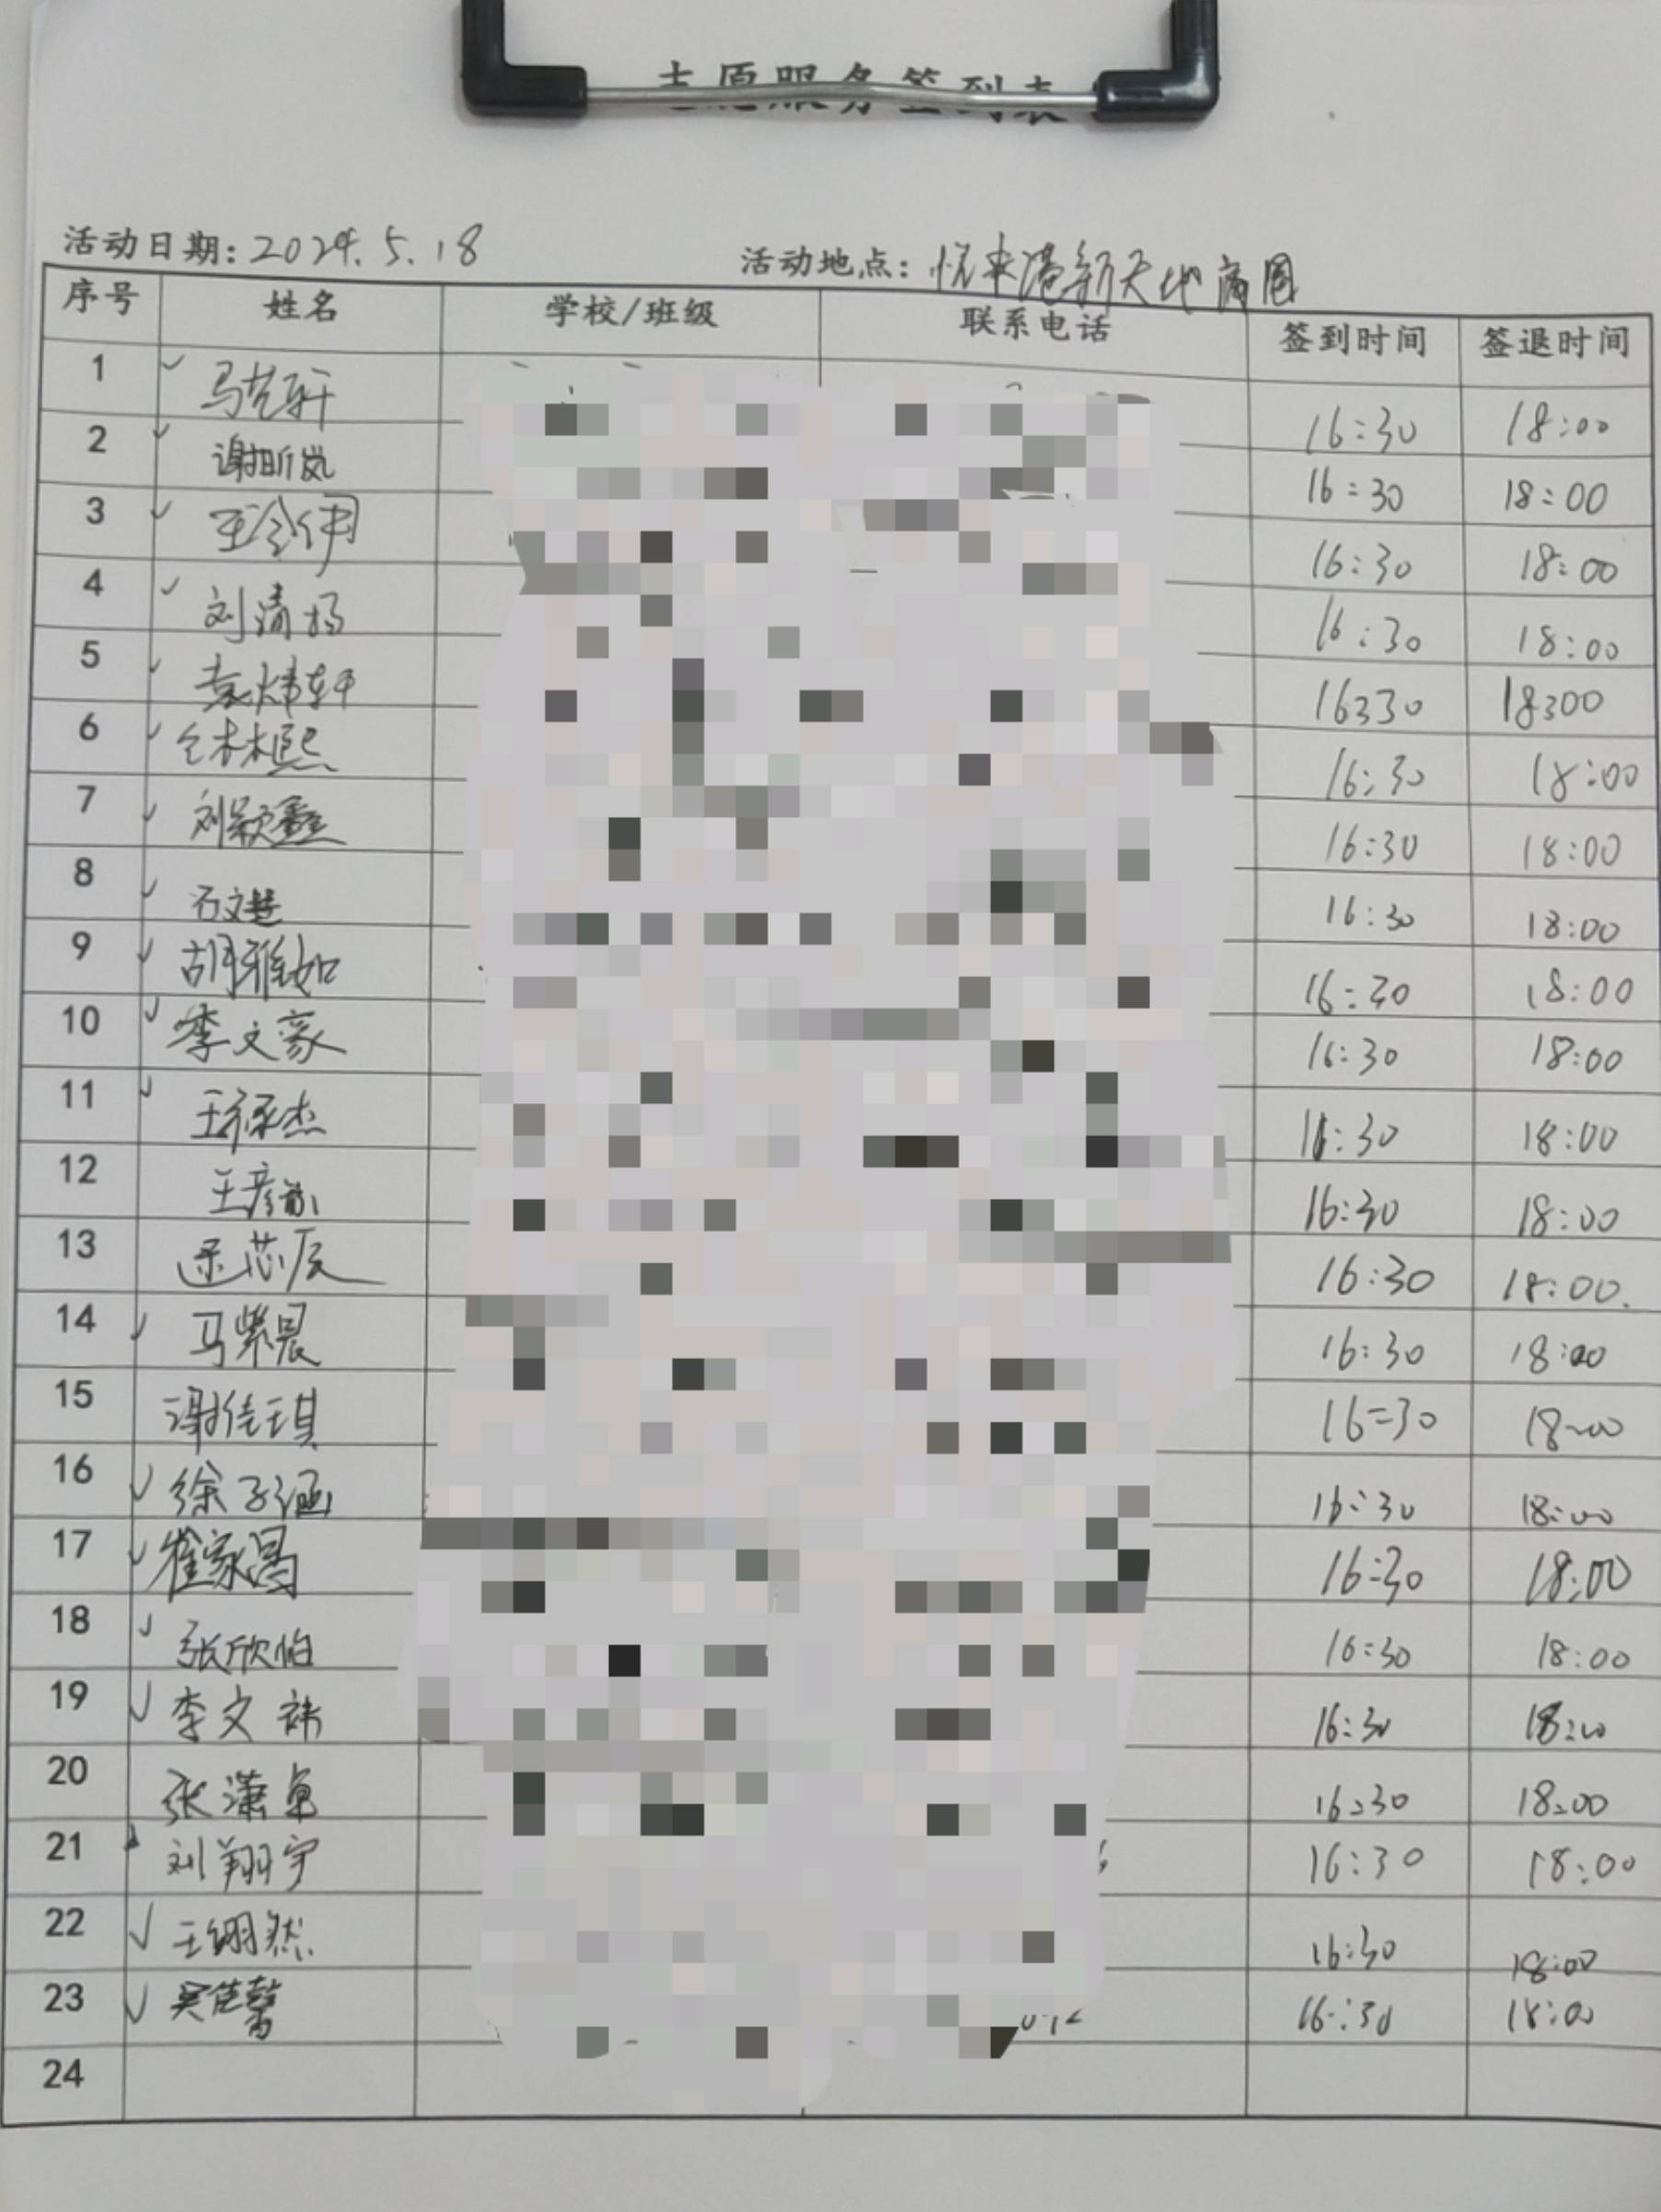 志愿服务签到表
活动日期：2024.5.18 活动地点：悦来港新天地商圈
序号 姓名 学校/班级 联系电话 签到时间 签退时间
1 马艺轩 16:30 18:00
2 谢昕岚 16:30 18:00
3 16:30 18:00
4 刘清扬 16:30 18:00
5 袁炜轩 16:30 18:00
6 16:30 18:00
7 刘颖鑫 16:30 18:00
8 石文慧 16:30 18:00
9 胡雅如 16:30 18:00
10 李文豪 16:30 18:00
11 王禄杰 16:30 18:00
12 王彦 16:30 18:00
13 芯辰 16:30 18:00.
14 马紫晨 16:30 18:00
15 谢佳琪 16:30 18:00
16 徐子涵 16:30 18:00
17 崔家昌 16:30 18:00
18 张欣怡 16:30 18:00
19 李文祎 16:30 18:00
20 张潇卓 16:30 18:00
21 刘翔宇 16:30 18:00
22 王翊然 16:30 18:00
23 吴佳馨 16:30 18:00
24